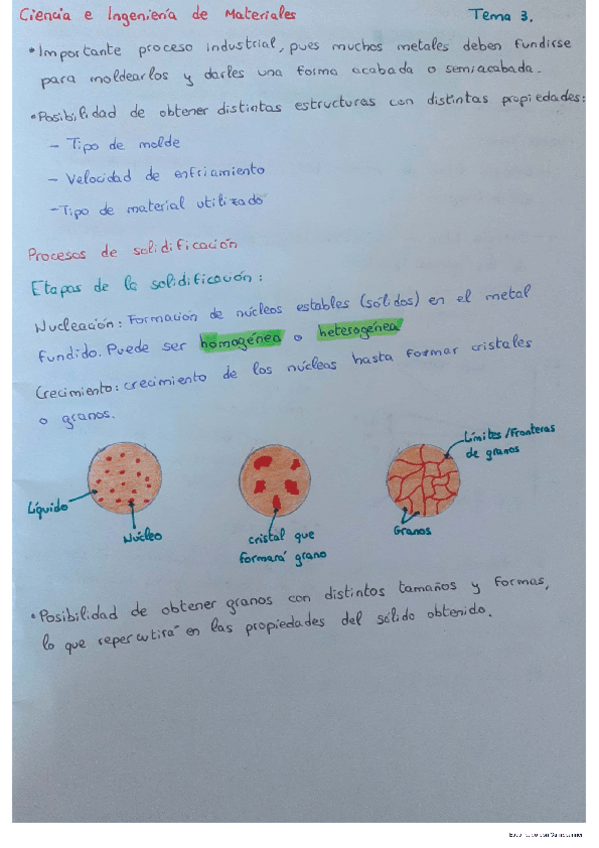 Ciencia e Ingeniería de Materiales
Tema 3.
• Importante proceso industrial, pues muchos metales deben fundirse
para moldearlos y darles una forma acabada o semiacabada.
• Posibilidad de obtener distintas estructuras con distintas propiedades:
- Tipo de molde
- Velocidad de enfriamiento
- Tipo de material utilizado
Procesos de solidificación
Etapas de la solidificación:
Nucleación: Formación de núcleos estables (sólidos) en el metal
fundido. Puede ser homogénea o heterogénea
Crecimiento: crecimiento de los núcleos hasta formar cristales
o granos.
Límites/Fronteras
de granos
Líquido
Núcleo
cristal que
formará grano
Granos
• Posibilidad de obtener granos con distintos tamaños y formas,
lo que repercutirá en las propiedades del sólido obtenido.